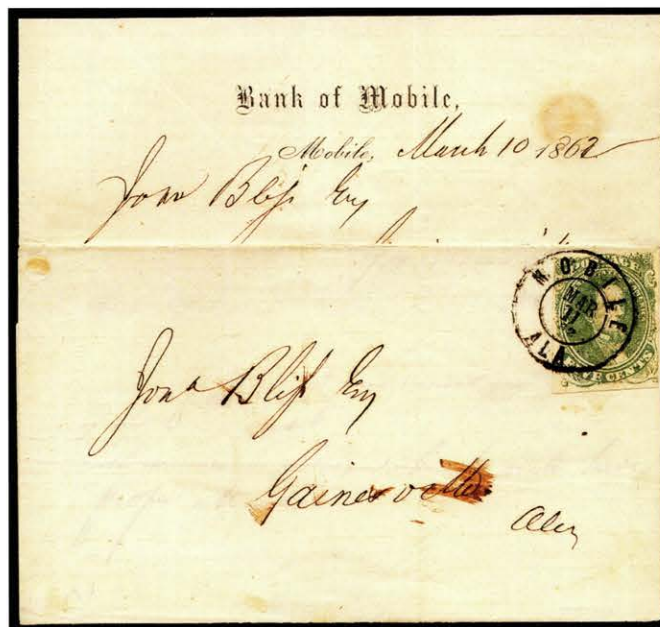 Bank of Mobile,
Mobile, March 10 1862
Jona Bliss Esq
MOBILE
MAR
11
ALA
Jona Bliss Esq
Gainesville
Ala